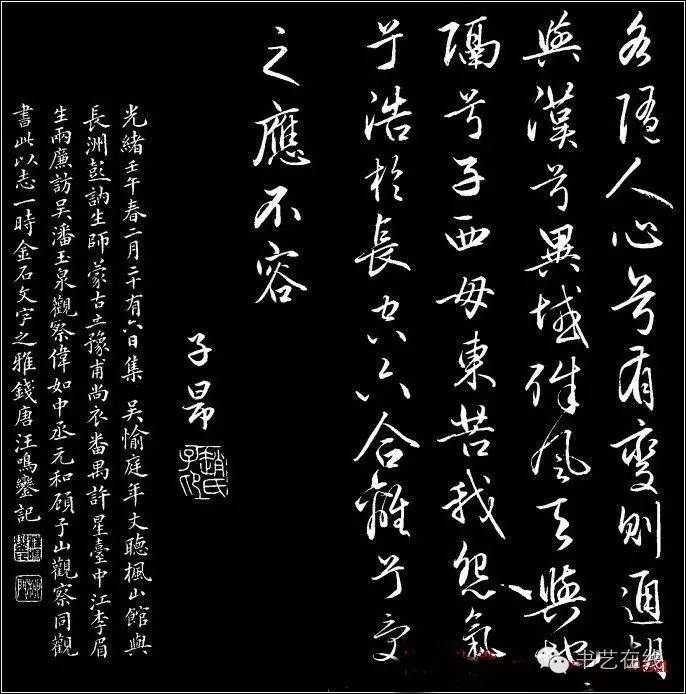 各隨人心兮有變則通胡
與漢兮異域殊風天與地
隔兮子西母東苦我怨氣
兮浩於長空六合離兮受
之應不容
子昂
趙氏子昂
光緒壬午春二月二十有六日集 吳愉庭年丈聽楓山館與
長洲彭訥生師蒙古立豫甫尚衣番禺許星臺中江李眉
生兩廉訪吳潘玉泉觀察偉如中丞元和顧子山觀察同觀
書此以志一時金石文字之雅錢唐汪鳴鑾記
书艺在线